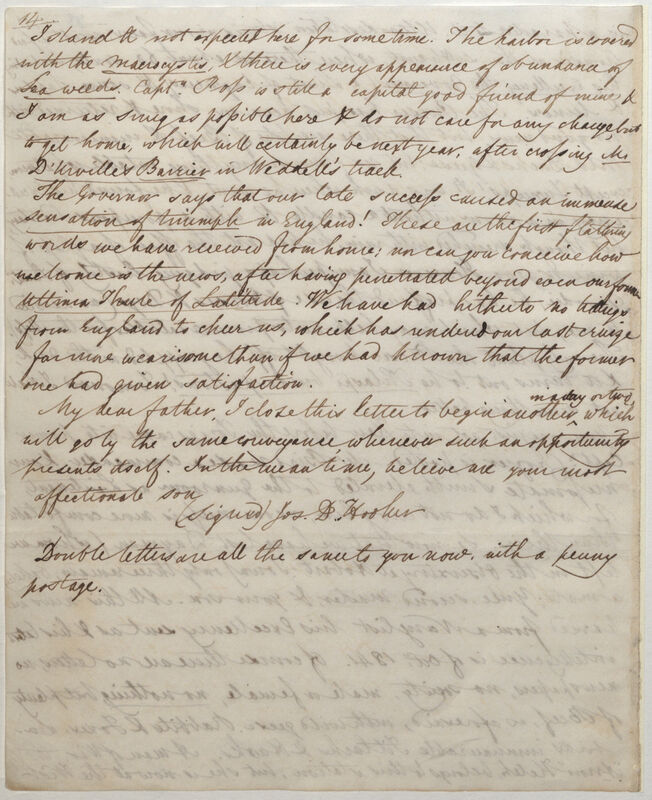 14
Island & not expected here for some time. The harbor is covered
with the macrocystis, & there is every appearance of abundance of
Sea weeds. Captn Ross is still a capital good friend of mine &
I am as snug as possible here & do not care for any change, but
to get home, which will certainly be next year, after crossing Mr
D'Urville's Barrier in Weddell's track.
The Governor says that our late success caused an immense
sensation of triumph in England! These are the first flattering
words we have received from home; nor can you conceive how
welcome is the news, after having penetrated beyond even our former
Ultima Thule of Latitude. We have had hitherto no tidings
from England to cheer us, which has rendered our last cruize
far more wearisome than if we had known that the former
one had given satisfaction.
My dear father, I close this letter to begin another in a day or two, which
will go by the same conveyance whenever such an opportunity
presents itself. In the mean time, believe me your most
affectionate son
(Signed) Jos. D. Hooker
Double letters are all the same to you now, with a penny
postage.